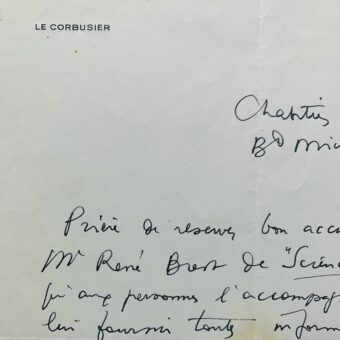 LE CORBUSIER
Bd
Prière de réserver bon accu
Mr René Brest de "Scienc
qui aux personnes l'accompag
lui fournir toutes inform